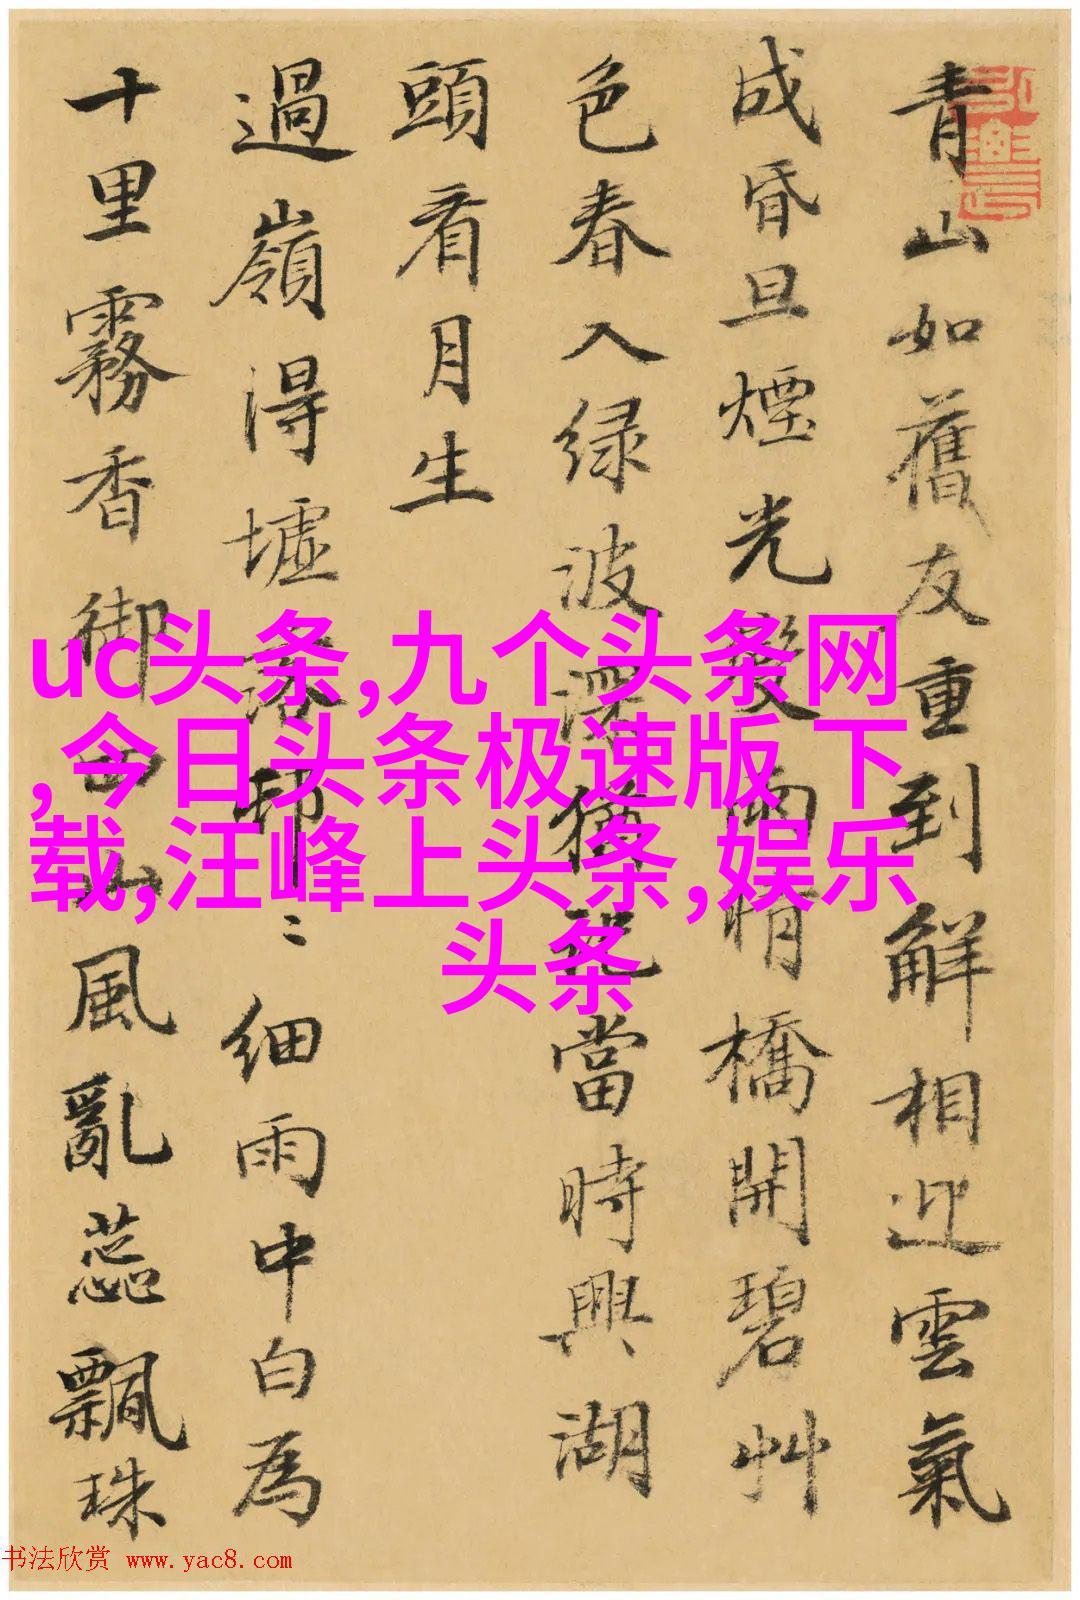 青山如舊友重到解相迎雲氣
成昏旦煙光變雨晴橋開碧艸
色春入绿波深猶記當時興湖
頭看月生
過嶺得墟落邨〻細雨中白為
十里霧香御四山風亂蕊飄珠
uc头条,九个头条网
,今日头条极速版 下
载,汪峰上头条,娱乐
头条
书法欣赏 www.yac8.com